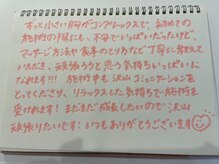 ずっと小さい胸がコンプレックスで、初めての
施術の際にも、不安でいっぱいだったけど、
マッサージ方法や食事のとり方など丁寧に教えて
いただき、頑張ろうと思う気持ちいっぱいに
なれます!!! 施術中も沢山コミュニケーションを
とってくださり、リラックスした気持ちで施術を
受けれます! まだまだ成長したいので沢山
頑張りたいです! いつもありがとうございます